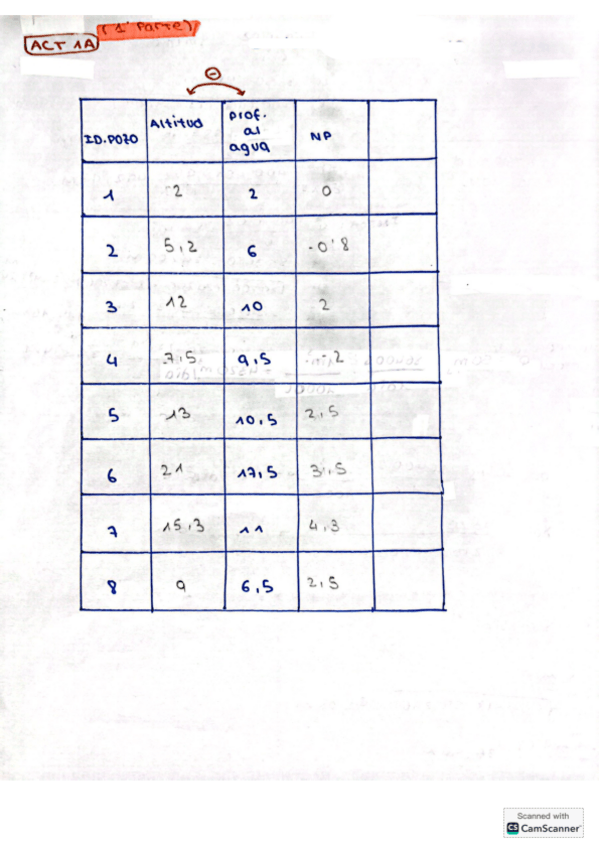 (1ª Parte)
ACT 1A
-
ID.POZO Altitud Prof. al agua NP
1 2 2 0
2 5,2 6 -0'8
3 12 10 2
4 7,5 9,5 -2
5 13 10,5 2,5
6 21 17,5 3,5
7 15,3 11 4,3
8 9 6,5 2,5
Scanned with
CS CamScanner